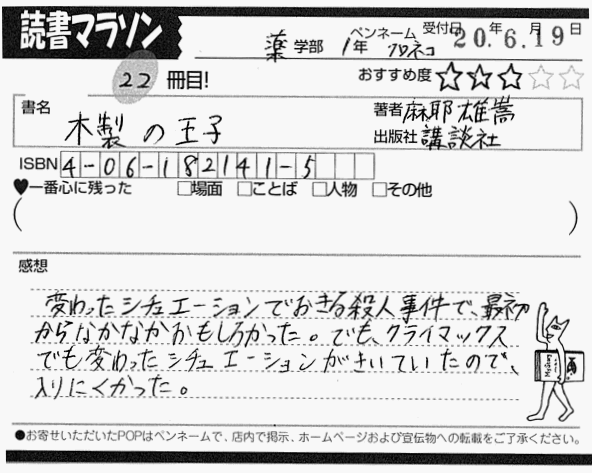 読書マラソン
薬 学部 1年 ペンネーム クロネコ 受付日 20.年6.月19日
22 冊目! おすすめ度 ★★★☆☆
書名 木製の王子 著者 麻耶雄嵩
出版社 講談社
ISBN 4-06-182141-5
♥一番心に残った □場面 □ことば □人物 □その他
( )
感想
変わったシチュエーションでおきる殺人事件で、最初
からなかなかおもしろかった。でも、クライマックス
でも変わったシチュエーションがきいていたので、
入りにくかった。
●お寄せいただいたPOPはペンネームで、店内で掲示、ホームページおよび宣伝物への転載をご了承ください。